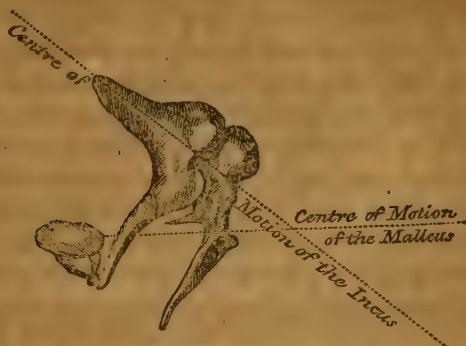 Centre of Motion of the Incus
Centre of Motion
of the Malleus